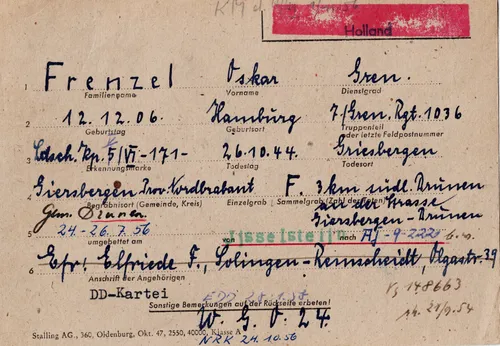 Holland
Frenzel Oskar Gren.
1 Familienname Vorname Dienstgrad
12.12.06. Hamburg 7/Gren. Rgt. 1036
2 Geburtstag Geburtsort Truppenteil
oder letzte Feldpostnummer
Ldsch. Kp. 5/VI -171- 26.10.44. Griesbergen
3 Erkennungsmarke Todestag Todesort
Giersbergen Prov. Nordbrabant F. 3 km südl. Drunen
4 Begräbnisort (Gemeinde, Kreis) Einzelgrab Sammelgrab (Zahl der Toten)
an der Strasse
Gem. Drunen Giersbergen - Drunen
24.-26.7.56
5 umgebettet am von Ijsselstein nach
6 Efr: Elfriede F., Solingen - Remscheidt, Olgastr. 39
Anschrift der Angehörigen
DD-Kartei
Sonstige Bemerkungen auf der Rückseite erbeten!
148663
W.G.O. 24.
Stalling AG., 360, Oldenburg, Okt. 47, 2550, 40000, Klasse A
NRK 24.10.56